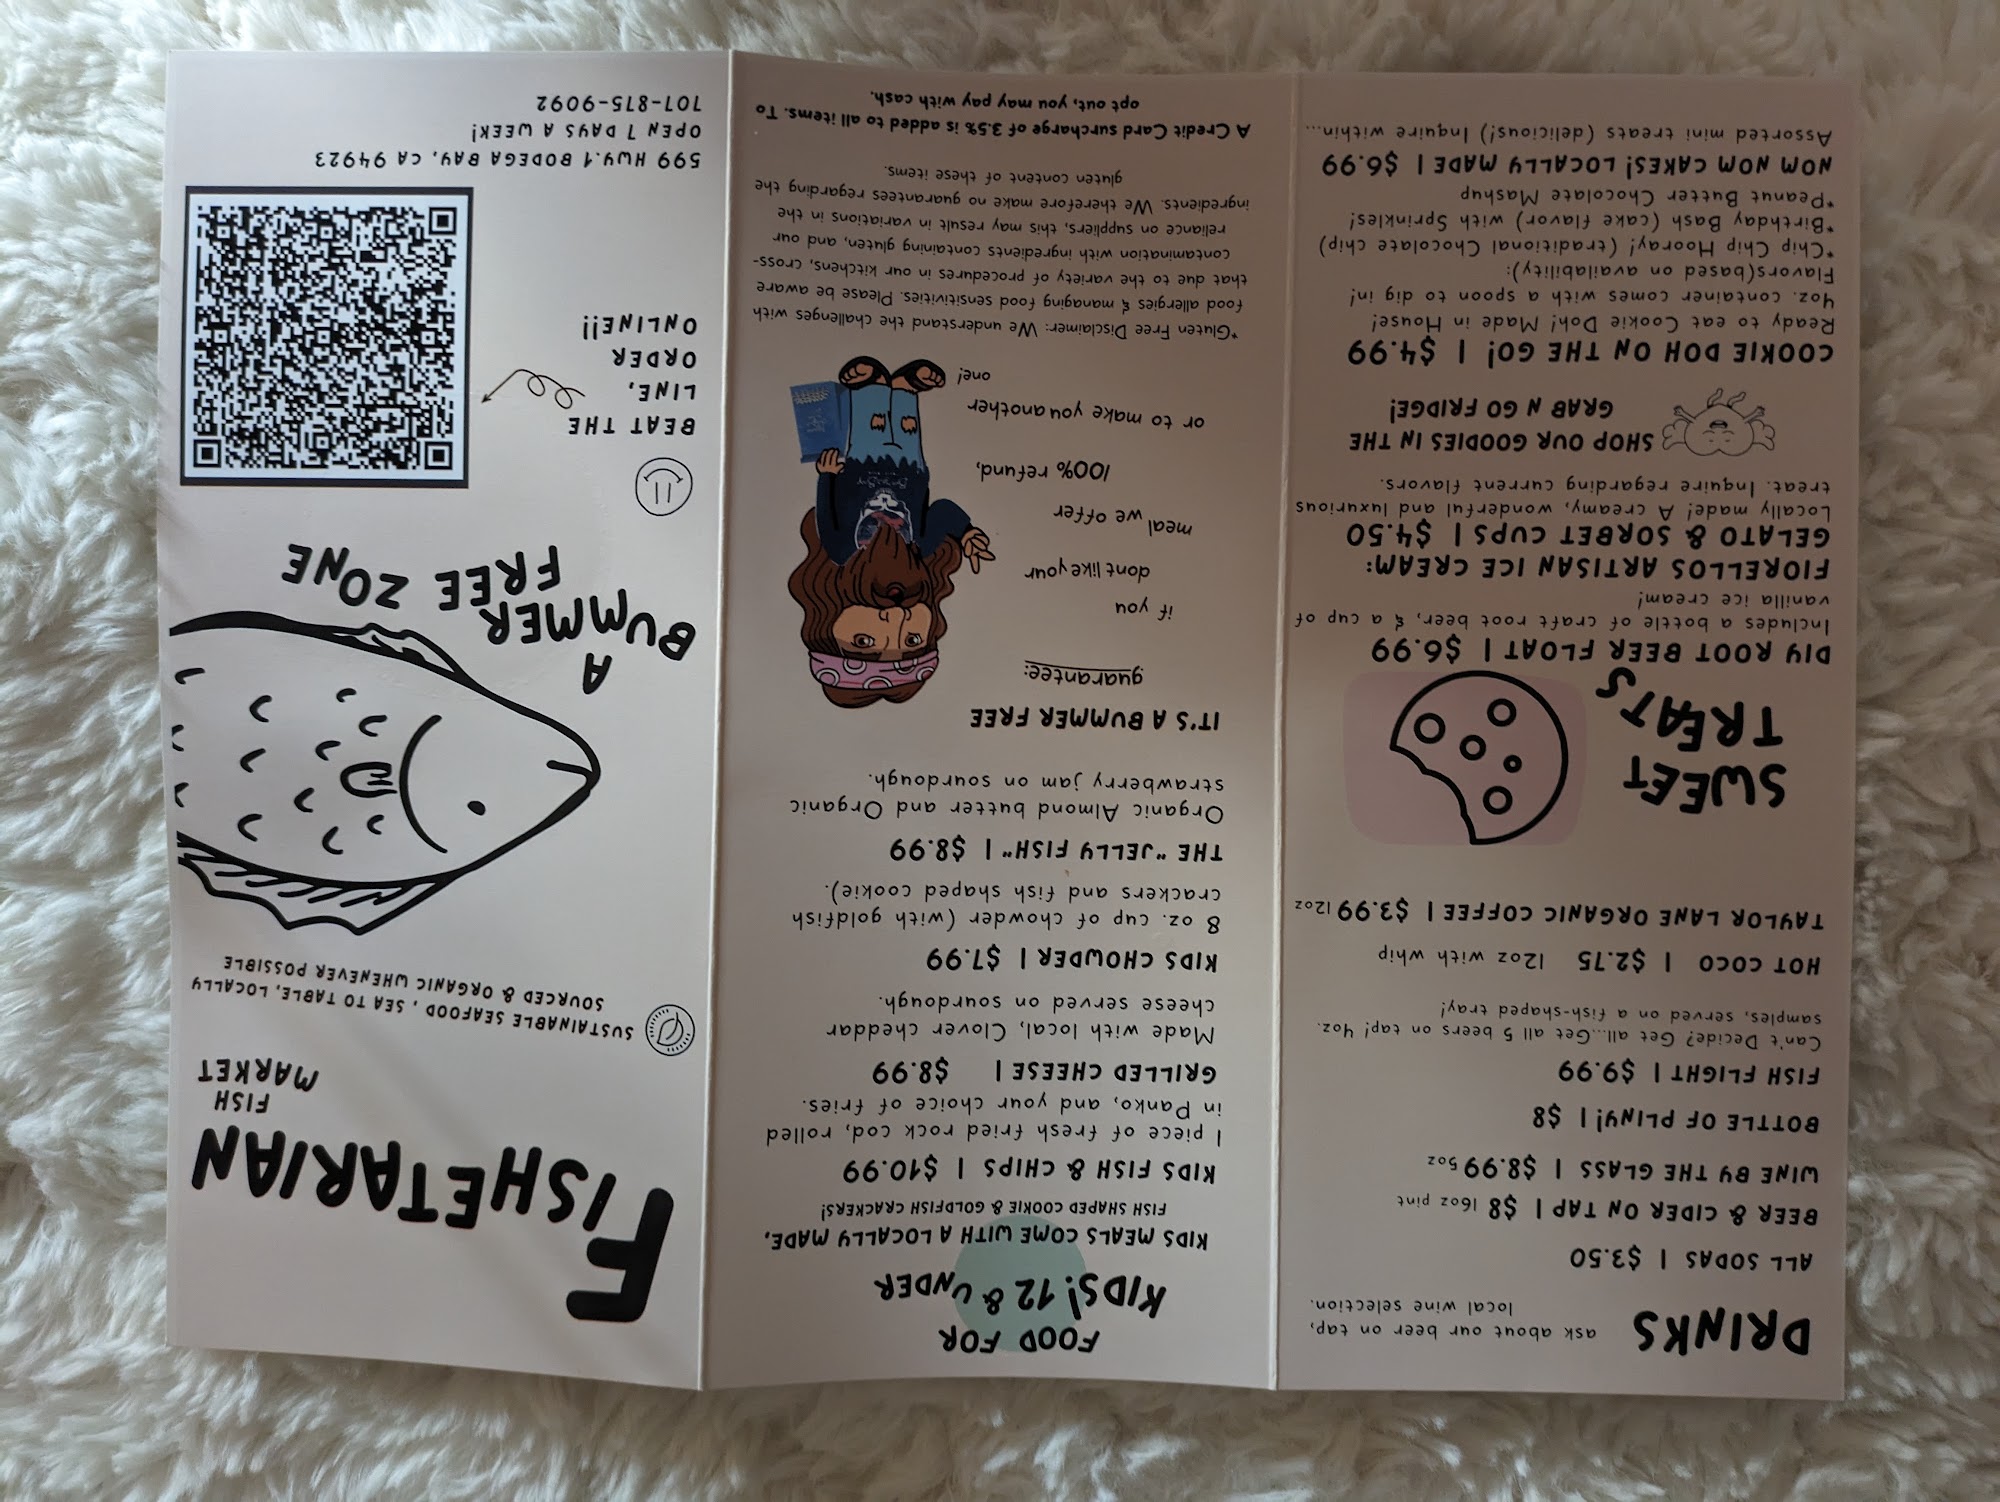 DRINKS
ask about our beer on tap,
local wine selection.
ALL SODAS | $3.50
BEER & CIDER ON TAP | $8 16oz pint
WINE BY THE GLASS | $8.99 5oz
BOTTLE OF PLINY! | $8
FISH FLIGHT | $9.99
Can't Decide? Get all...Get all 5 beers on tap! 4oz.
samples, served on a fish-shaped tray!
HOT COCO | $2.75 12oz with whip
TAYLOR LANE ORGANIC COFFEE | $3.99 12oz
SWEET
TREATS
DIY ROOT BEER FLOAT | $6.99
Includes a bottle of craft root beer, & a cup of
vanilla ice cream!
FIORELLOS ARTISAN ICE CREAM:
GELATO & SORBET CUPS | $4.50
Locally made! A creamy, wonderful and luxurious
treat. Inquire regarding current flavors.
SHOP OUR GOODIES IN THE
GRAB N GO FRIDGE!
COOKIE DOH ON THE GO! | $4.99
Ready to eat Cookie Doh! Made in House!
4oz. container comes with a spoon to dig in!
Flavors(based on availability):
*Chip Chip Hooray! (traditional Chocolate chip)
*Birthday Bash (cake flavor) with Sprinkles!
*Peanut Butter Chocolate Mashup
NOM NOM CAKES! LOCALLY MADE | $6.99
Assorted mini treats (delicious!) Inquire within...
FOOD FOR
KIDS! 12 & UNDER
KIDS MEALS COME WITH A LOCALLY MADE,
FISH SHAPED COOKIE & GOLDFISH CRACKERS!
KIDS FISH & CHIPS | $10.99
1 piece of fresh fried rock cod, rolled
in Panko, and your choice of fries.
GRILLED CHEESE | $8.99
Made with local, Clover cheddar
cheese served on sourdough.
KIDS CHOWDER | $7.99
8 oz. cup of chowder (with goldfish
crackers and fish shaped cookie).
THE "JELLY FISH" | $8.99
Organic Almond butter and Organic
strawberry jam on sourdough.
IT'S A BUMMER FREE
guarantee:
if you
dont like your
meal we offer
100% refund,
or to make you another
one!
*Gluten Free Disclaimer: We understand the challenges with
food allergies & managing food sensitivities. Please be aware
that due to the variety of procedures in our kitchens, cross-
contamination with ingredients containing gluten, and our
reliance on suppliers, this may result in variations in the
ingredients. We therefore make no guarantees regarding the
gluten content of these items.
A Credit Card surcharge of 3.5% is added to all items. To
opt out, you may pay with cash.
FISHETARIAN
FISH
MARKET
SUSTAINABLE SEAFOOD, SEA TO TABLE, LOCALLY
SOURCED & ORGANIC WHENEVER POSSIBLE
A
BUMMER
FREE ZONE
BEAT THE
LINE,
ORDER
ONLINE!!
599 HWY.1 BODEGA BAY, CA 94923
OPEN 7 DAYS A WEEK!
707-875-9092